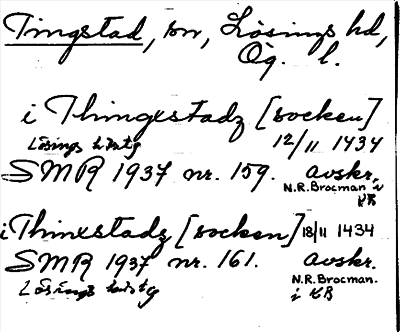 Tingstad, sn, Lösings hd,
Ög. l.
i Thingxstadz [socken]
Lösings hdstg 12/11 1434
SMR 1937 nr. 159. avskr.
N.R. Brocman i
KB
i Thinxstadz [socken] 18/11 1434
SMR 1937 nr. 161. avskr.
Lösings hdstg N.R. Brocman.
i KB